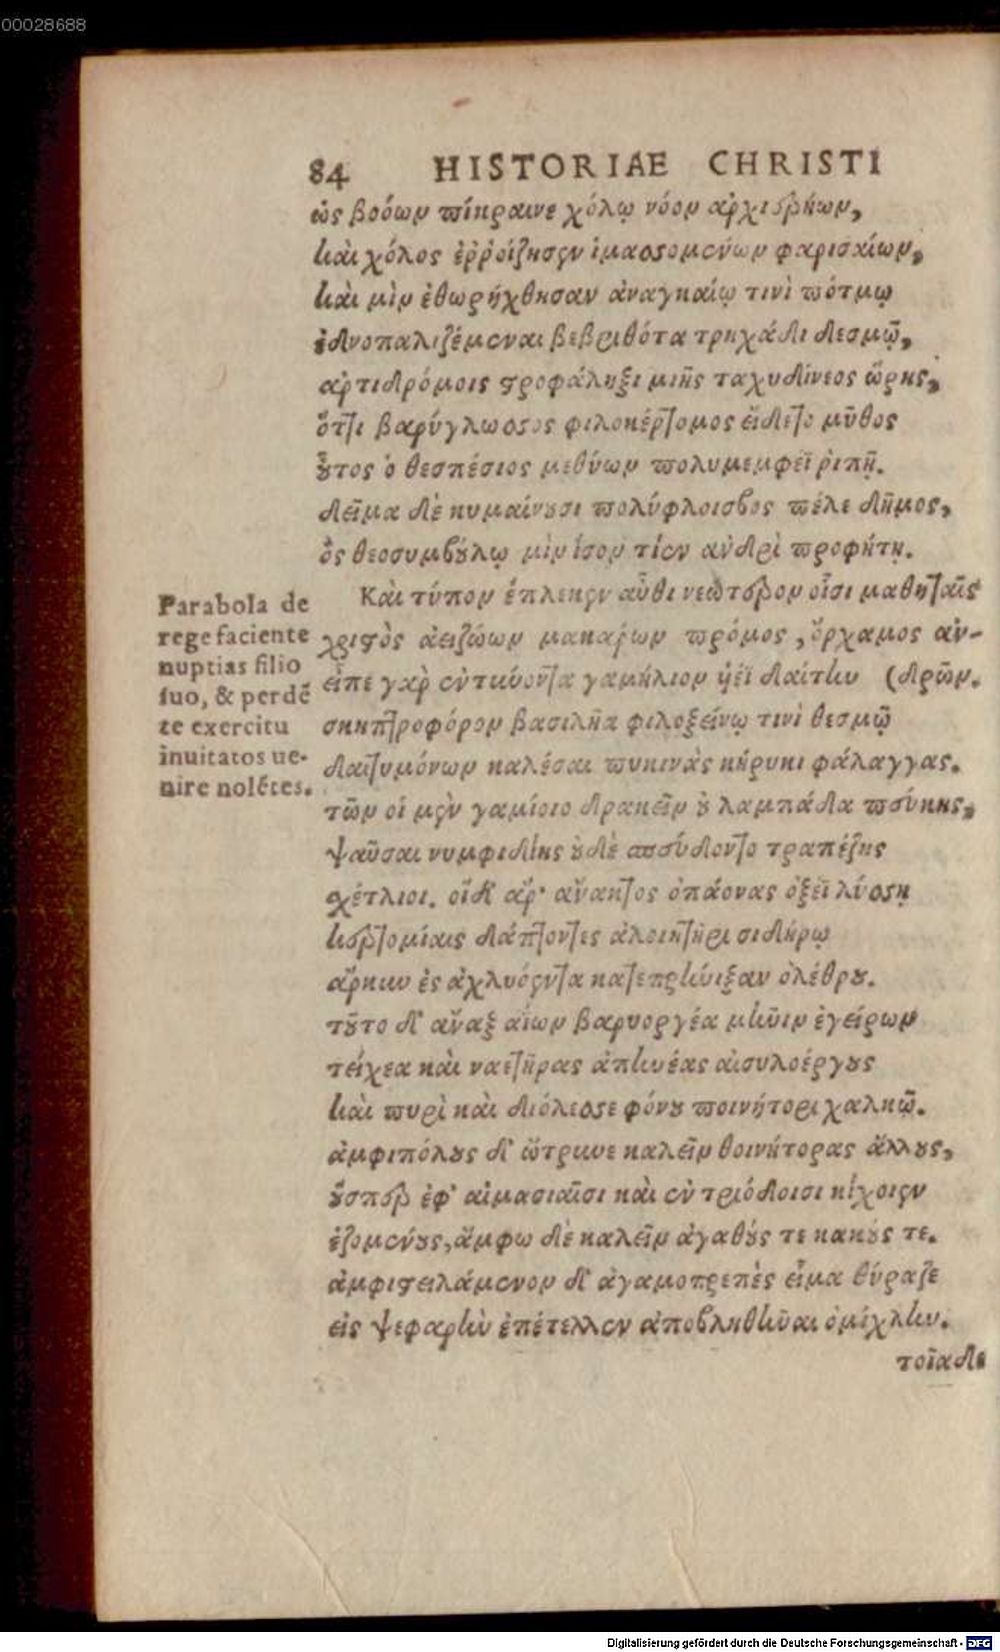 00028688
84 HISTORIAE CHRISTI
ὡς βοόων πίκραινε χόλῳ νόον ἀρχιερήων,
καὶ χόλος ἐῤῥοίζησεν ἱμασσομένων φαρισαίων,
καὶ μὶν ἐθωρήχθησαν ἀναγκαίῳ τινὶ πότμῳ
ἐδνοπαλιζέμεναι βεβριθότα τρηχάδι δεσμῷ,
ἀρτιδρόμοις στροφάληξι μιῆς ταχυδίνεος ὥρης,
ὅττι βαρύγλωσσος φιλοκέρτομος εἴδετο μῦθος
οὗτος ὁ θεσπέσιος μεθύων πολυμεμφέϊ ῥιπῇ.
δεῖμα δὲ κυμαίνουσι πολύφλοισβος πέλε δῆμος,
ὃς θεοσυμβούλῳ μὶν ἶσον τίεν ἀνδρὶ προφήτῃ.
Καὶ τύπον ἔπλεκεν αὖθι νεώτερον οἷσι μαθηταῖς
χριστὸς ἀειζώων μακάρων πρόμος, ὄρχαμος ἀν-
εἶπε γὰρ ἐντύνοντα γαμήλιον ἡέϊ δαίτην (δρῶν.
σκηπτροφόρον βασιλῆα φιλοξείνῳ τινὶ θεσμῷ
δαιτυμόνων καλέσαι πυκινὰς κήρυκι φάλαγγας.
τῶν οἱ μὲν γαμίοιο δρακεῖν οὐ λαμπάδα πεύκης,
ψαῦσαι νυμφιδίης οὐδὲ σπεύδοντο τραπέζης
σχέτλιοι. οἵδ' ἄρ' ἄνακτος ὀπάονας ὀξέϊ λύσσῃ
κερτομίαις δάπτοντες ἀλοιητῆρι σιδήρῳ
ἄρκυν ἐς ἀχλυόεντα κατεπρήνιξαν ὀλέθρου.
τοῦτο δ' ἄναξ ἀΐων βαρυοργέα μῆνιν ἐγείρων
τείχεα καὶ ναετῆρας ἀπηνέας αἰσυλοέργους
καὶ πυρὶ καὶ διόλεσσε φόνου ποινήτορι χαλκῷ.
ἀμφιπόλους δ' ὤτρυνε καλεῖν θοινήτορας ἄλλους,
οὕσπερ ἐφ' αἱμασιαῖσι καὶ ἐν τριόδοισι κίχοιεν
ἑζομένους, ἄμφω δὲ καλεῖν ἀγαθούς τε κακούς τε.
ἀμφιστειλάμενον δ' ἀγαμοπρεπὲς εἷμα θύραζε
εἰς ψεφαρὴν ἐπέτελλεν ἀποβληθῆναι ὀμίχλην.
τοῖα δὲ
Parabola de
rege faciente
nuptias filio
suo, & perdē
te exercitu
inuitatos ue-
nire nolētes.
Digitalisierung gefördert durch die Deutsche Forschungsgemeinschaft - DFG